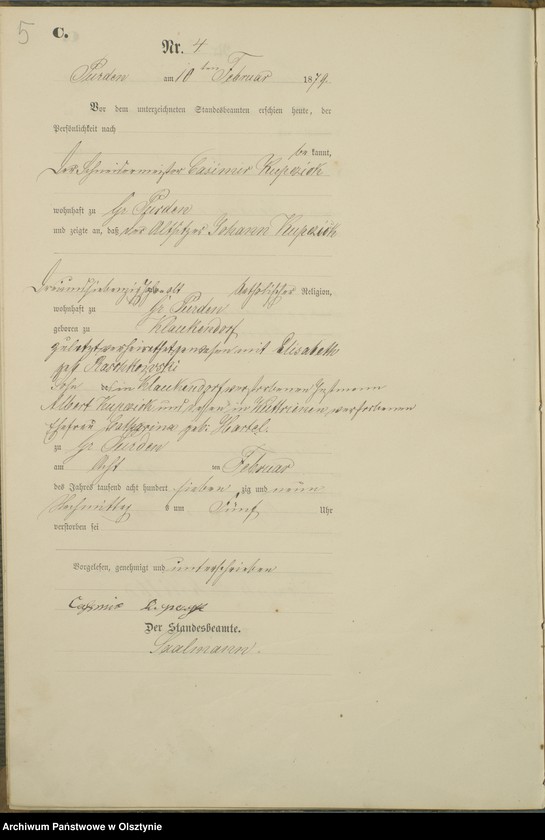 5
C.
Nr. 4
Purden am 10ten Februar 1879.
Vor dem unterzeichneten Standesbeamten erschien heute, der
Persönlichkeit nach
be kannt,
Der Schneidermeister Casimir Kupczik
wohnhaft zu Gr Purden
und zeigte an, daß der Altsitzer Johann Kupczik
Dreiundsiebenzig Jahre alt katholischer Religion,
wohnhaft zu Gr Purden
geboren zu Klaukendorf
zuletzt verheirathet gewesen mit Elisabeth
geb
Sohn in Klaukendorf verstorbenen
Albert Kupczik und dessen in verstorbenen
Ehefrau Catharina geb.
zu Gr Purden
am Acht ten Februar
des Jahres tausend acht hundert sieben zig und neun
Nachmittag s um Fünf Uhr
verstorben sei
Vorgelesen, genehmigt und unterschrieben
Casimir
Der Standesbeamte.
Saalmann.
Archiwum Państwowe w Olsztynie